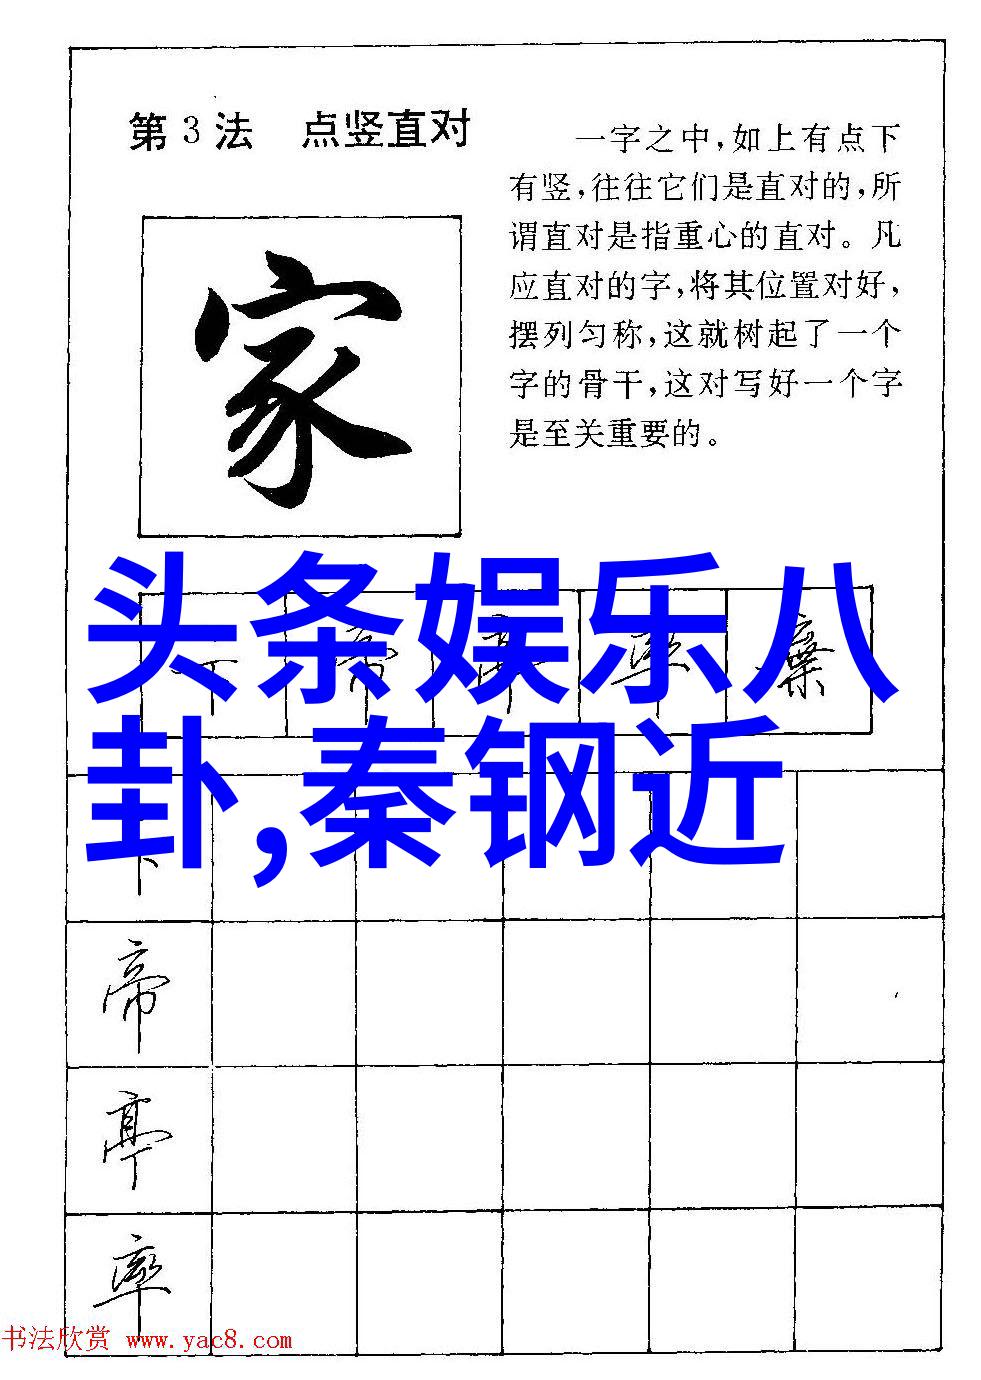 第3法 点竖直对
一字之中,如上有点下
有竖,往往它们是直对的,所
谓直对是指重心的直对。凡
应直对的字,将其位置对好,
摆列匀称,这就树起了一个
字的骨干,这对写好一个字
是至关重要的。
家
头条娱乐八
卦,秦钢近
卞 帝 亭 率 棄
卞
帝
亭
率
书法欣赏 www.yac8.com